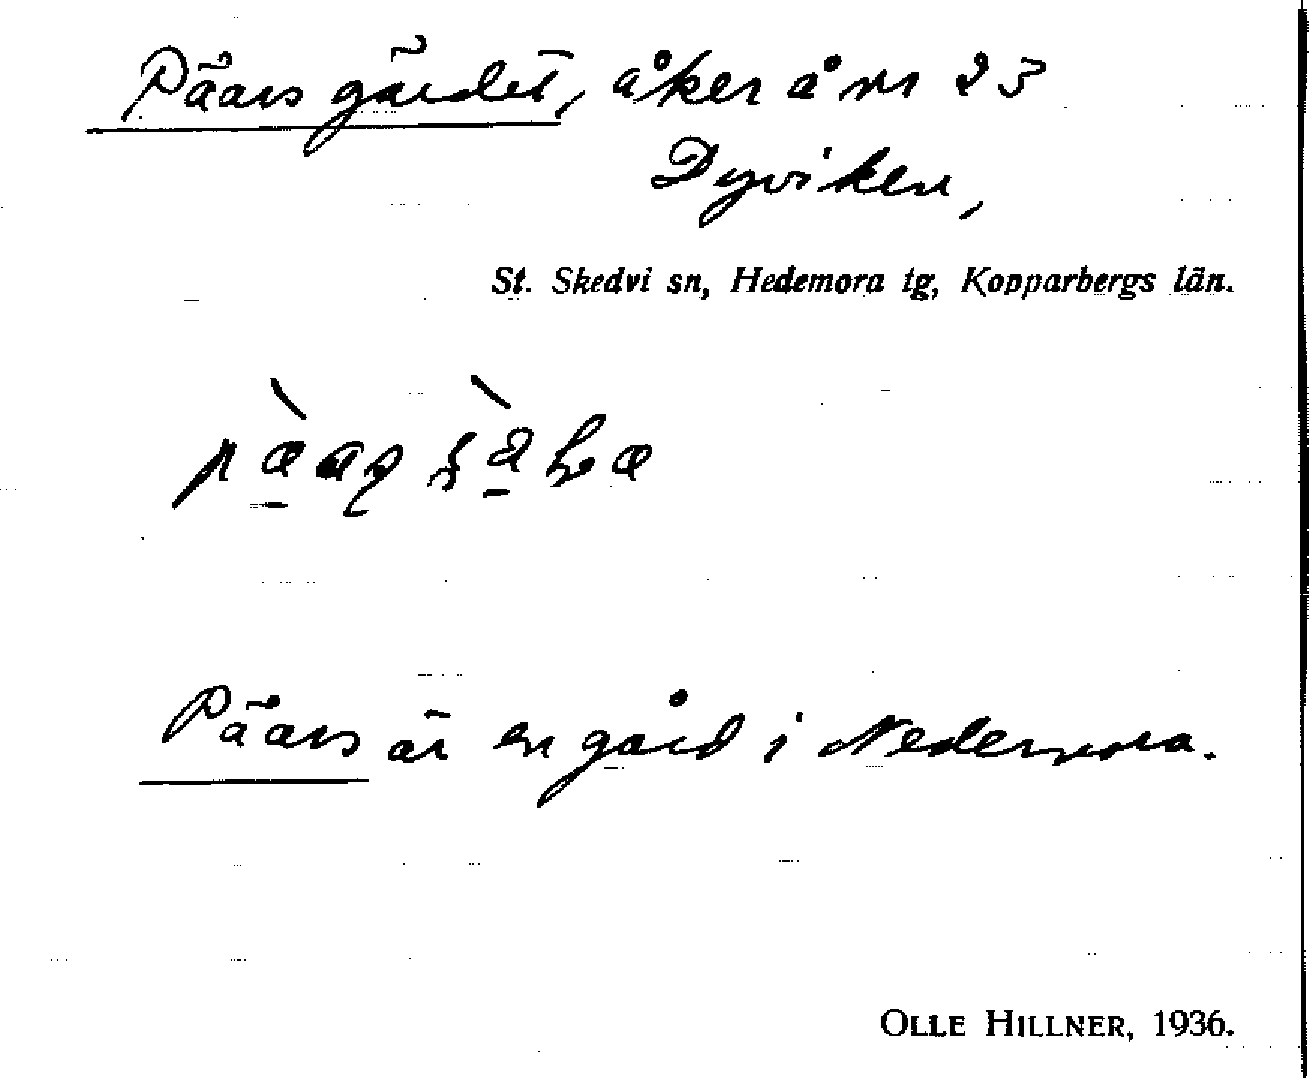 Päärs gärdet, åker å nr 23
Dyviken,
St. Skedvi sn, Hedemora tg, Kopparbergs län.
Päärs är en gård i Nedernora.
OLLE HILLNER, 1936.